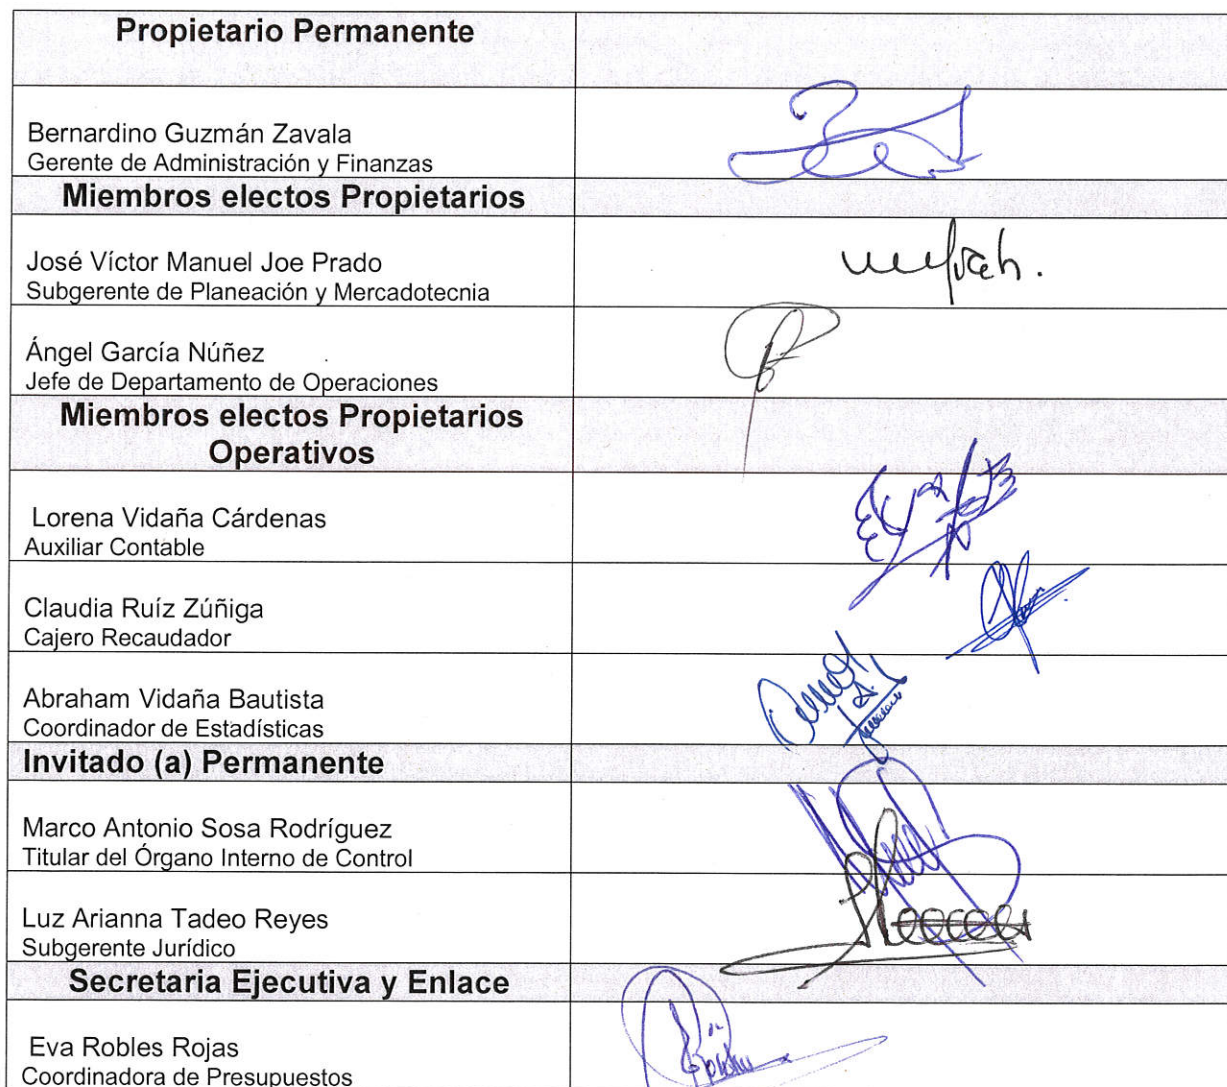 Propietario Permanente
Bernardino Guzmán Zavala
Gerente de Administración y Finanzas
Miembros electos Propietarios
José Víctor Manuel Joe Prado
Subgerente de Planeación y Mercadotecnia
Ángel García Núñez
Jefe de Departamento de Operaciones
Miembros electos Propietarios
Operativos
Lorena Vidaña Cárdenas
Auxiliar Contable
Claudia Ruíz Zúñiga
Cajero Recaudador
Abraham Vidaña Bautista
Coordinador de Estadísticas
Invitado (a) Permanente
Marco Antonio Sosa Rodríguez
Titular del Órgano Interno de Control
Luz Arianna Tadeo Reyes
Subgerente Jurídico
Secretaria Ejecutiva y Enlace
Eva Robles Rojas
Coordinadora de Presupuestos